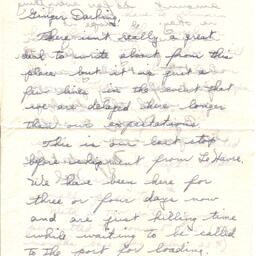 "Ginger Darling"
There isn't really a great
deal to write about from this
place but it is just a
few lines in the event that
we are delayed here longer
than our expectations.
This is our last stop
before redeployment from Le Havre.
We have been here for
three or four days now
and are just killing time
while waiting to be called
to the port for loading.